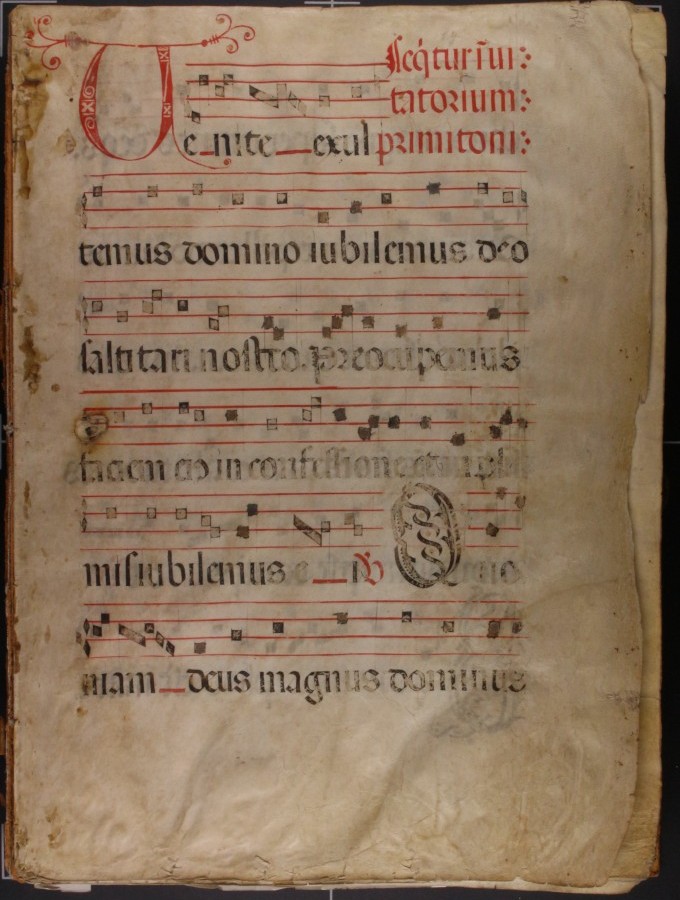 Seq̄tur īui:
tatorium:
Ue_nite_exul primi toni:
temus domino iubilemus deo
saluta ri nostro. preocupemus
faciem eius in confessione et in psal
mis iubilemus e_i ℣ Quo
niam_deus magnus dominus